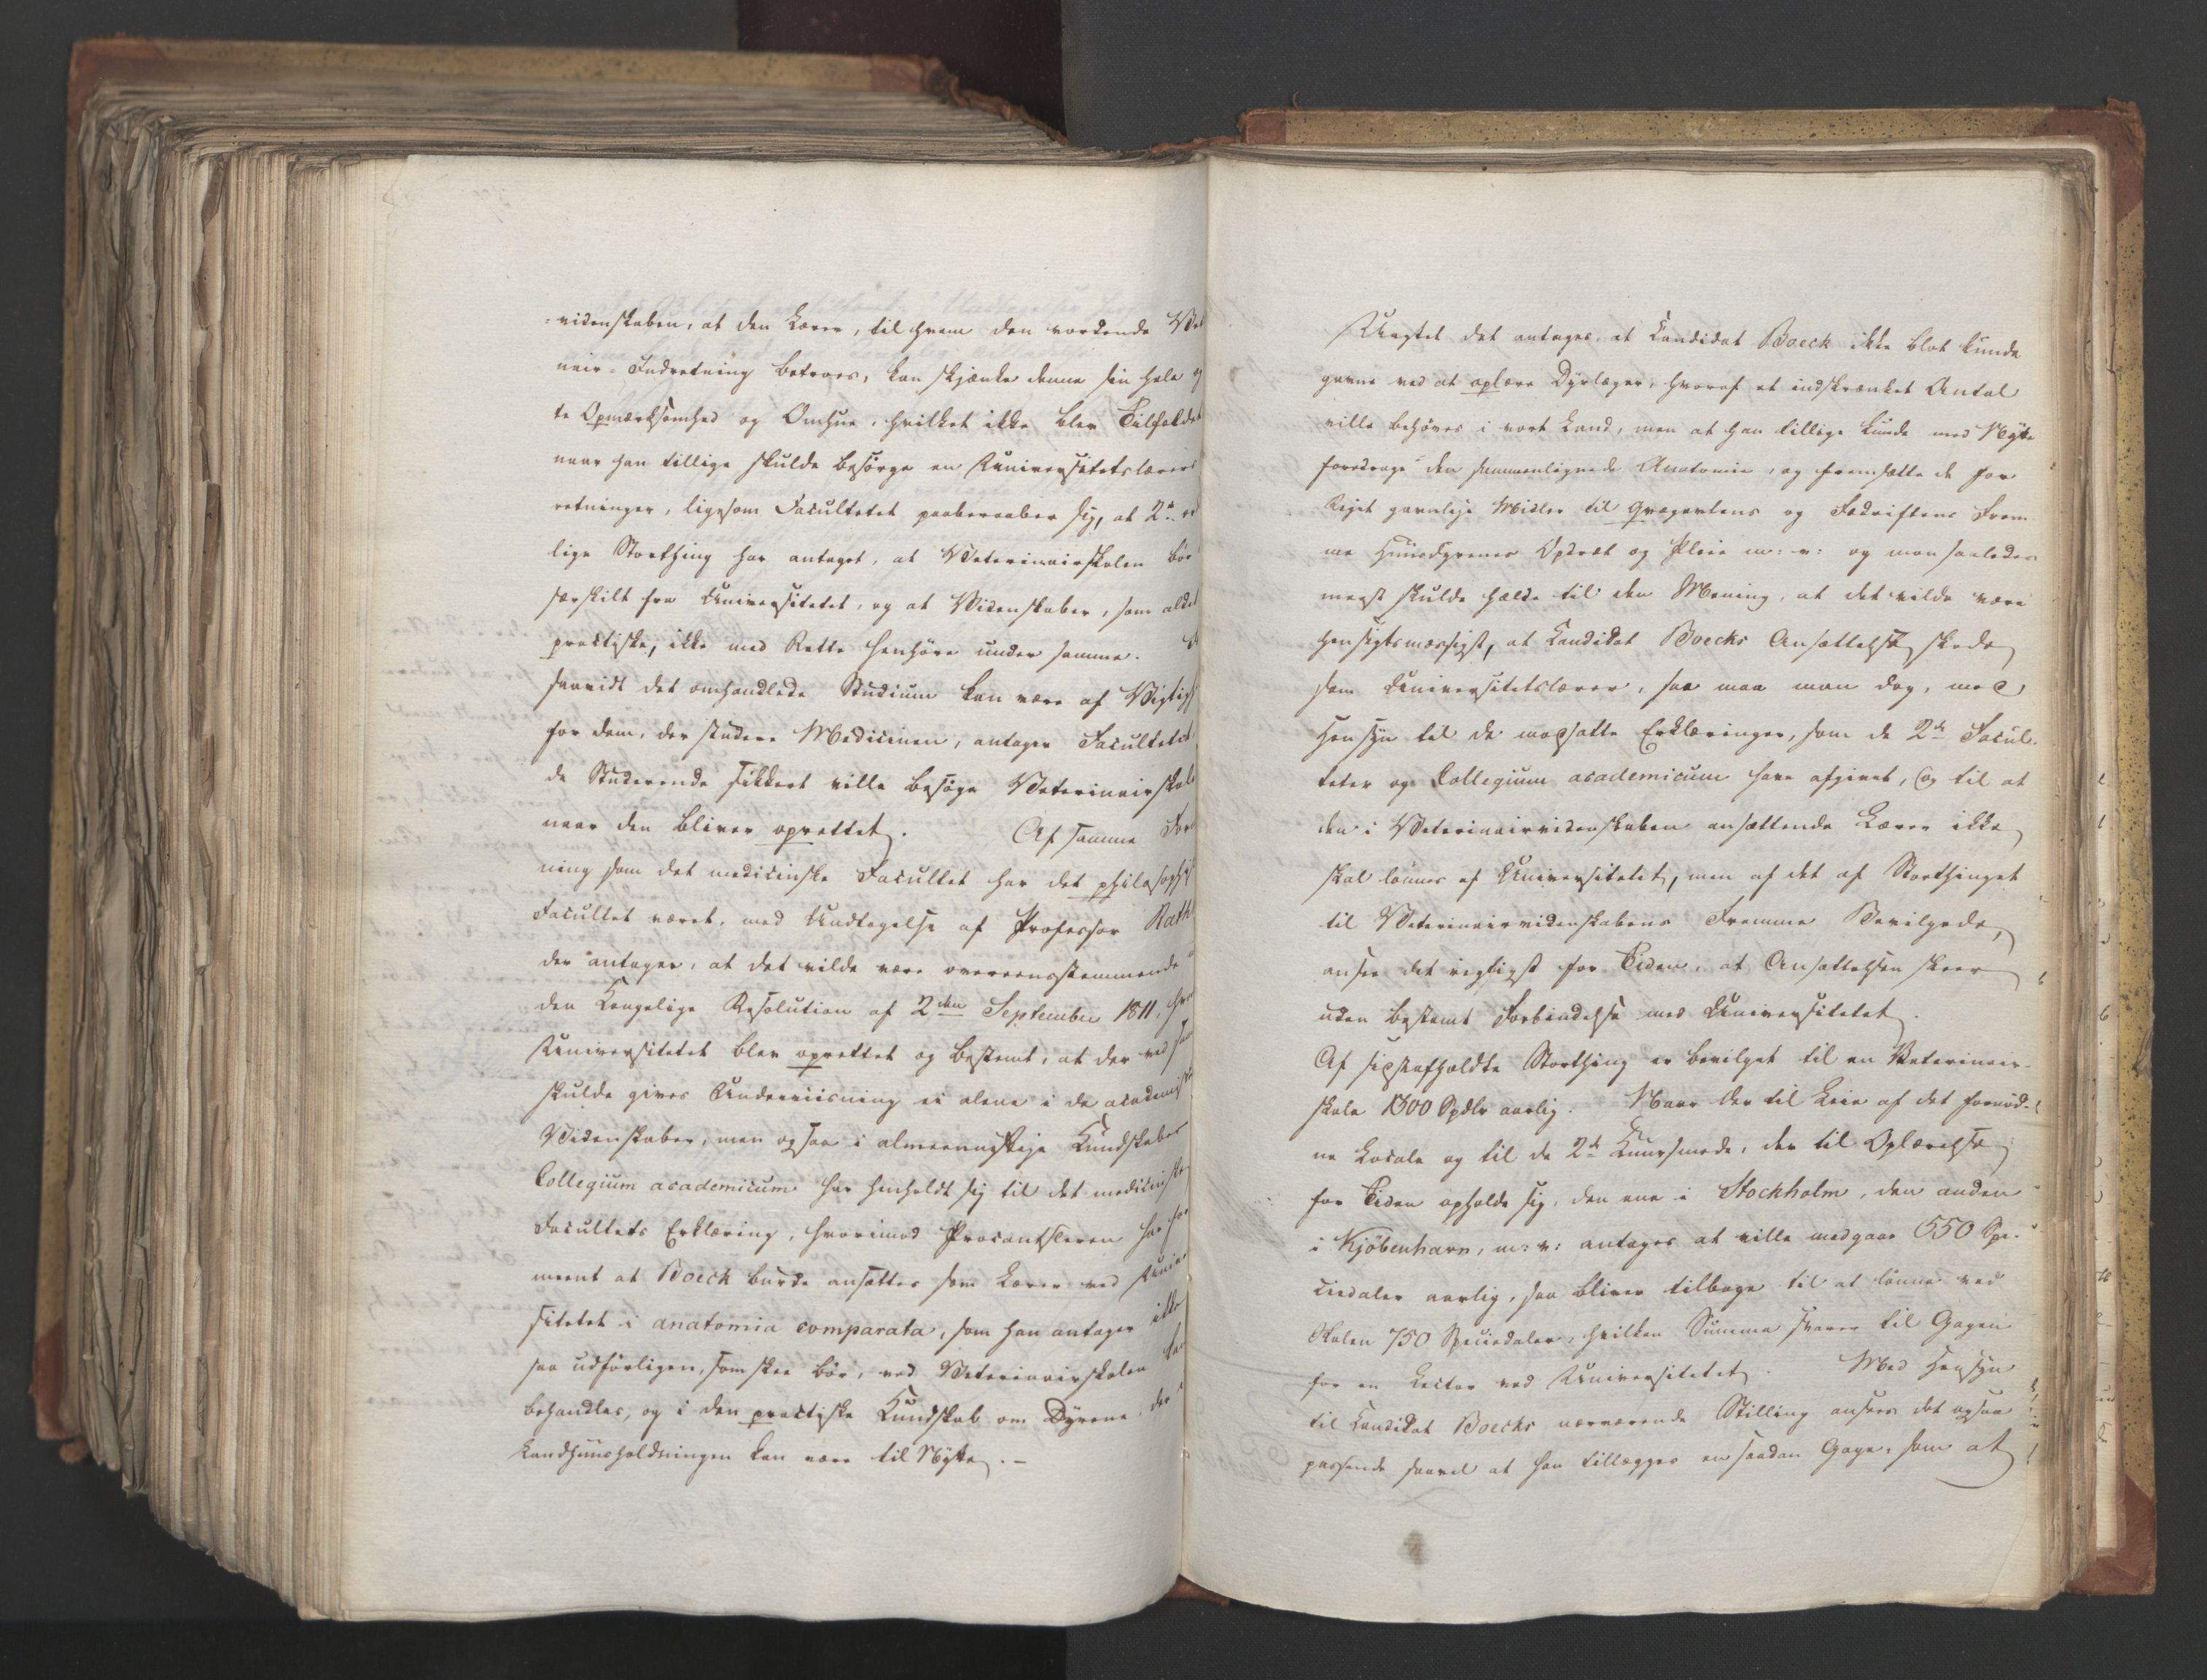 =videnskaben, at den Lærer, til hvem den vordende Vet
nair-Indretning betroes, kan skjænke denne sin hele og
te Opmærksomhed og Omhue, hvilket ikke blev Tilfældet
naar han tillige skulde besørge en Universitetslærers
retninger, ligesom Facultetet paaberaaber sig, at 2det
lige Storthing har antaget, at Veterinairskolen bør
særskilt fra Universitetet, og at Videnskaber, som aldel
practiske, ikke med Rette henhøre under samme.
saavidt det omhandlede Studium kan være af Vigtigh
for dem, der studere Medicinen, antager Facultetet
de Studerende sikkert ville besøge Veterinairskole
naar den bliver oprettet. Af samme For
ning som det medicinske Facultet har det philosophis
Facultet været, med Undtagelse af Professor Rath
der antager, at det vilde være overeensstemmende
den Kongelige Resolution af 2den September 1811, hvor
Universitetet blev oprettet og bestemt, at der ved sam
skulde gives Underviisning ei alene i de academiske
Videnskaber, men ogsaa i almeennyttige Kundskaber
Collegium academicum har henholdt sig til det medicinske
Facultets Erklæring, hvorimod Procantsleren har for
meent at Boeck burde ansættes som Lærer ved Univer
sitetet i anatomia comparata, som han antager ikke
saa udførligen, som skee bør, ved Veterinairskolen kan
behandles, og i den practiske Kundskab om Dyrene, der i
Landhuusholdningen kan være til Nytte. -
Uagtet det antages, at Candidat Boeck ikke blot kunde
gavne ved at oplære Dyrlæger, hvoraf et indskrænket Antal
ville behøves i vort Land, men at han tillige kunde med Nytte
foredrage den sammenlignede Anatomie, og fremsætte de for
Riget gavnlige Midler til Qvægavlens og Fædriftens Frem-
me Huusdyrenes Opdræt og Pleie m: v: og man saaledes
meest skulde hælde til den Mening, at det vilde være
hensigtsmæssigst, at Candidat Boecks Ansættelse skede
som Universitetslærer, saa maa man dog, med
Hensyn til de modsatte Erklæringer, som de 2de Facul-
teter og Collegium academicum have afgivet, og til at
den i Veterinairvidenskaben ansættende Lærer ikke
skal lønnes af Universitetet, men af det af Storthinget
til Veterinairvidenskabens Fremme Bevilgede,
ansee det rigtigst for Tiden, at Ansættelsen skeer
uden bestemt Forbindelse med Universitetet.
Af sidstafholdte Storthing er bevilget til en Veterinair-
skole 1300 Spdlr aarlig. Naar der til Leie af det fornød-
ne Locale og til de 2de Cuursmede, der til Oplærelse
for Tiden opholde sig, den ene i Stockholm, den anden
i Kjöbenhavn, m: v: antages at ville medgaae 550 Spe-
ciedaler aarlig, saa bliver tilbage til at lønne ved
Skolen 750 Speciedaler, hvilken Summa svarer til Gagen
for en Lector ved Universitetet. Med Hensyn
til Candidat Boecks nærværende Stilling ansees det ogsaa
passende saavel at han tillægges en saadan Gage, som at